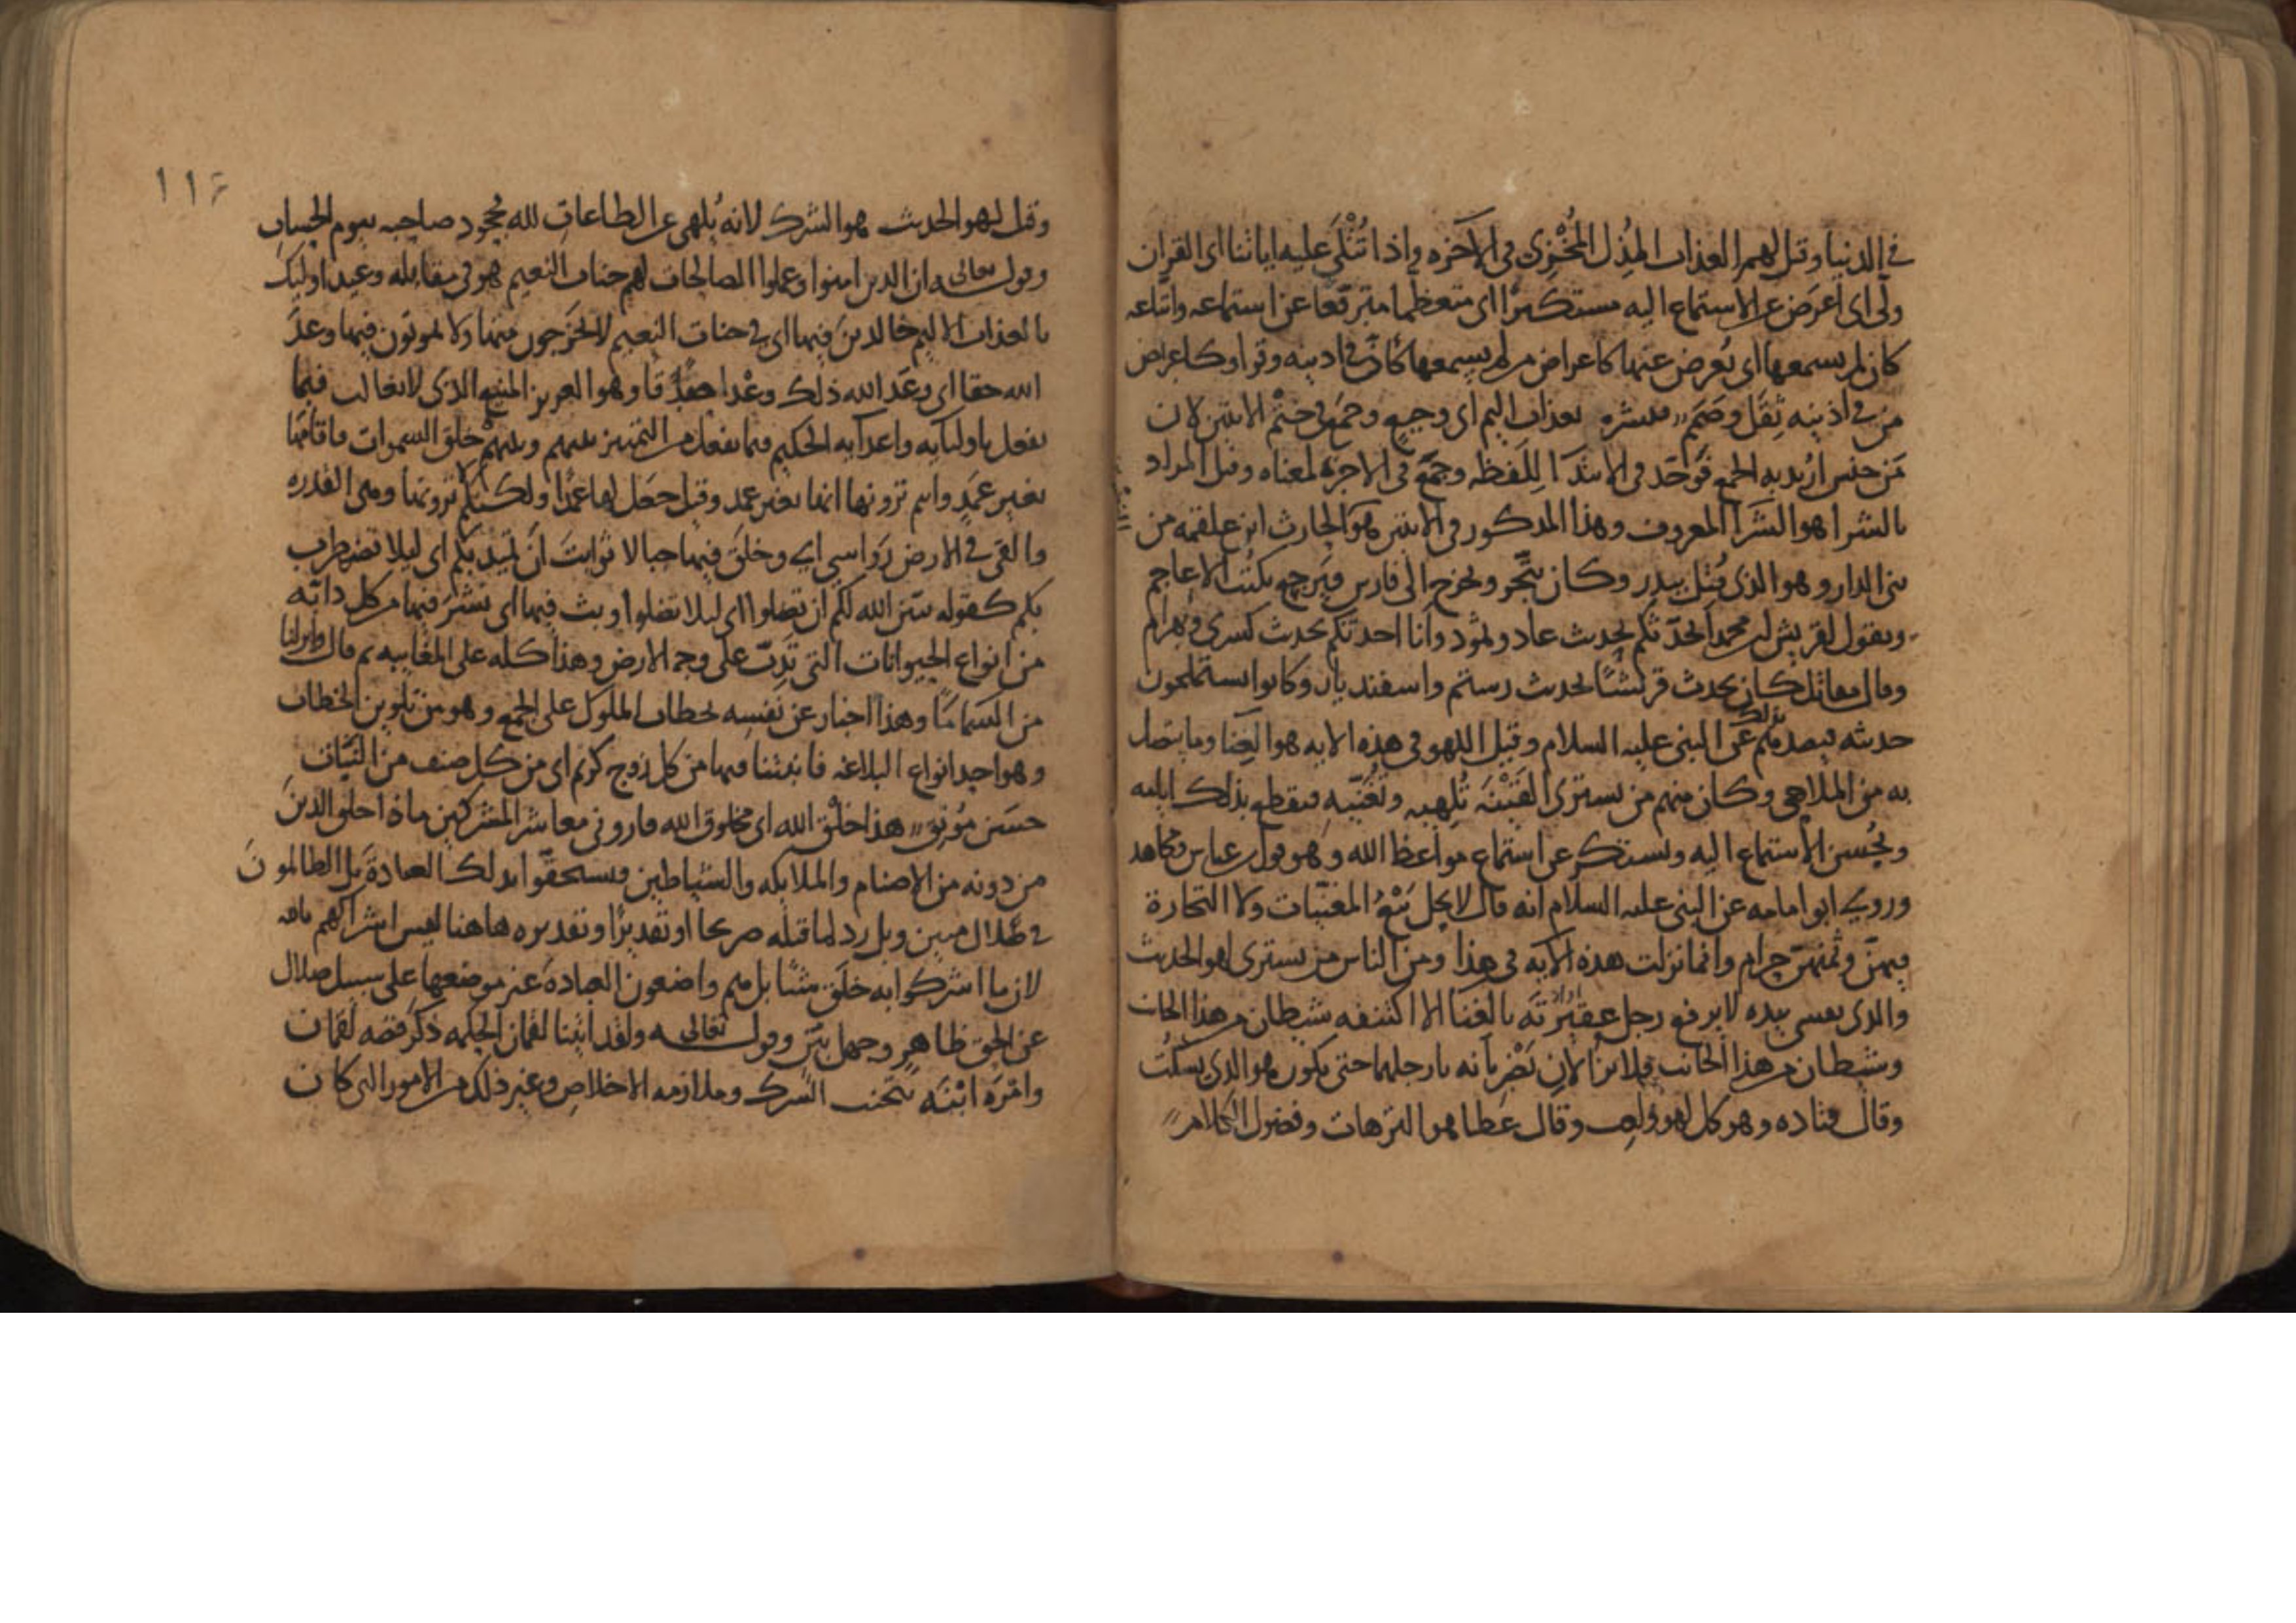 في الدنيا وقيل لهم العذاب المذل المخزى فى الاخرة واذا تُتْلَى عليه اياتنا اى القران
ولى اى اعرض عن الاستماع اليه مستكبرا اى متعظما مترفعا عن استماعه واتباعه
كان لم يسمعها اى يُعرض عنها كاعراض من لم يسمعها كان في اذنيه وقرا اى كاعراض
من في اذنيه ثِقَل وصَمَم فبشره بعذاب اليم اى وجيع وجمع في ختم الايتين لان
مَن جنس اريد به الجمع فوَحّد فى الابتدا لِلَفظه وجمع فى الاخرة لمعناه وقيل المراد
بالشرا هو الشرا المعروف وهذا المذكور فى الايتين هو الحارث ابن علقمه من
بنى الدار وهو الذى قُتل ببدر وكان يتّجر ويخرج الى فارس فيرجع بكتب الاعاجم
ويقول لقريش ان محمدا يحدّثكم بحديث عاد وثمود وانا احدثكم بحديث كسرى وبهرام
وقال مقاتل كان يحدث قريشًا بحديث رستم واسفنديار وكانوا يستملحون
حديثه فيصدهم بذلك عن النبى عليه السلام وقيل اللهو فى هذه الايه هو الغنا وما يتصل
به من الملاهى وكان منهم من يشترى القَيْنَة تُلهيه وتُغنّيه فيقطع بذلك ايامه
ويحسن الاستماع اليه ويستكبر عن استماع مواعظ الله وهو قول ابن عباس ومجاهد
وروى ابو امامه عن النبى عليه السلام انه قال لا يحل بَيْعُ المغنّيات ولا التجارة
فيهنّ وثمنهنّ حرام وانما نزلت هذه الآيه فى هذا ومن الناس من يشترى لهو الحديث
والذى نفسى بيده لا يرفع رجل عقيرته بالغنا الا اكتنفه شيطان من هذا الجانب
وشيطان من هذا الجانب فلا يزالان يَضْربانه بارجلهما حتى يكون هو الذى يسكُت
وقال قتاده وهو كل لهو ولعب وقال عطا هو الترهات وفضول الكلام
١١٤
وقيل لهو الحديث هو الشرك لانه يُلهى عن الطاعات لله بجحود صاحبه بيوم الحساب
وقوله تعالى ان الذين امنوا وعملوا الصالحات لهم جنات النعيم هو فى مقابله وعيد اوليك
بالعذاب الاليم خالدين فيها اى في جنات النعيم لا يخرجون منها ولا يموتون فيها وعدَ
الله حقا اى وعَد الله ذلك وعْدا صدقا وهو العزيز المنيع الذى لا يغالب فيما
يفعل باوليايه واعدايه الحكيم فيما يفعل من التمييز بينهم خلق السموات فاقامها
بغير عمَدٍ وانتم ترونها انها بغير عمد وقيل جعل لها عمدًا ولكنكم لا ترونها وهى القدره
والقى في الارض رَواسى اي وخلق فيها جبالا ثوابت ان تميد بكم اى ليلا تضطرب
بكم كقوله يبين الله لكم ان تضلوا اى ليلا تضلوا وبث فيها اى نشر فيها من كل دابّه
من انواع الحيوانات التى تدبّ على وجه الارض وهذا كله على المغايبه ثم قال وانزلنا
من السما مًا وهذا اخبار عن نفسه بخطاب الملوك على الجمع وهو من تلوين الخطاب
وهو احد انواع البلاغه فانبتنا فيها من كل زوج كريم اى من كل صنف من النبات
حسَن مُونِق هذا خلْق الله اى مخلوق الله فارونى معاشر المشركين ماذا خلق الذينَ
من دونه من الاصنام والملايكه والشياطين فيستحقّوا بذلك العبادة بل الظالمونَ
في ضلال مبين وبل رد لما قبله صريحا او تقديرًا وتقديره هاهنا ليس اشراكهم بالله
لان ما اشركوا به خلَق شيئًا بل هم واضعون العبادة غير موضعها على سبيل ضلال
عن الحق ظاهرٍ وجهل بيّن وقوله تعالى ولقد اتينا لقمان الحكمه ذكر قصه لقمان
وامْرَه ابْنَه بتجنب الشرك وملازمه الاخلاص وغير ذلك من الامور التى كان